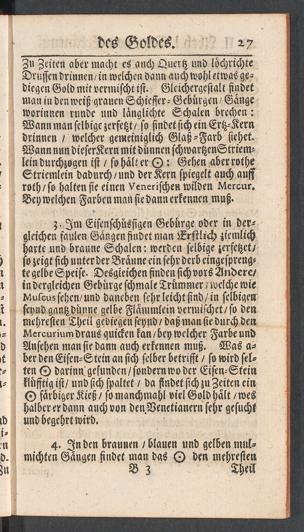 des Goldes. 27
Zu Zeiten aber macht es auch Quertz und löchrichte
Drussen drinnen/ in welchen dann auch wohl etwas ge-
diegen Gold mit vermischt ist. Gleichergestalt findet
man in den weiß-grauen Schieffer-Gebürgen/ Gänge
worinnen runde und länglichte Schalen brechen:
Wann man selbige zersetzt/ so findet sich ein Ertz-Kern
drinnen/ welcher gemeiniglich Glaß-Farb siehet.
Wann nun dieser Kern mit dünnen schwartzen Striem-
lein durchzogen ist/ so hält er ☉: Gehen aber rothe
Striemlein dadurch/ und der Kern spiegelt auch auff
roth/ so halten sie einen Venerischen wilden Mercur.
Bey welchen Farben man sie dann erkennen muß.
3. Im Eisenschüssigen Gebürge oder in der-
gleichen faulen Gängen findet man Erstlich ziemlich
harte und braune Schalen: werden selbige zersetzet/
so zeigt sich unter der Bräune ein sehr derb eingespreng-
te gelbe Speise. Desgleichen finden sich vors Andere/
in dergleichen Gebürge schmale Trümmer/ welche wie
Muscus sehen/ und daneben sehr leicht sind/ in selbigen
seynd gantz dünne gelbe Flämmlein vermischet/ so den
mehresten Theil gediegen seynd/ daß man sie durch den
Mercurium draus quicken kan/ bey welcher Farbe und
Ansehen man sie dann auch erkennen muß. Was a-
ber den Eisen-Stein an sich selber betrifft/ so wird sel-
ten ☉ darinn gefunden/ sondern wo der Eisen-Stein
klüfftig ist/ und sich spaltet/ da findet sich zu Zeiten ein
☉ färbiger Kieß/ so manchmahl viel Gold hält/ wes
halber er dann auch von den Venetianern sehr gesucht
und begehrt wird.
4. In den braunen/ blauen und gelben mul-
michten Gängen findet man das ☉ den mehresten
B 3 Theil